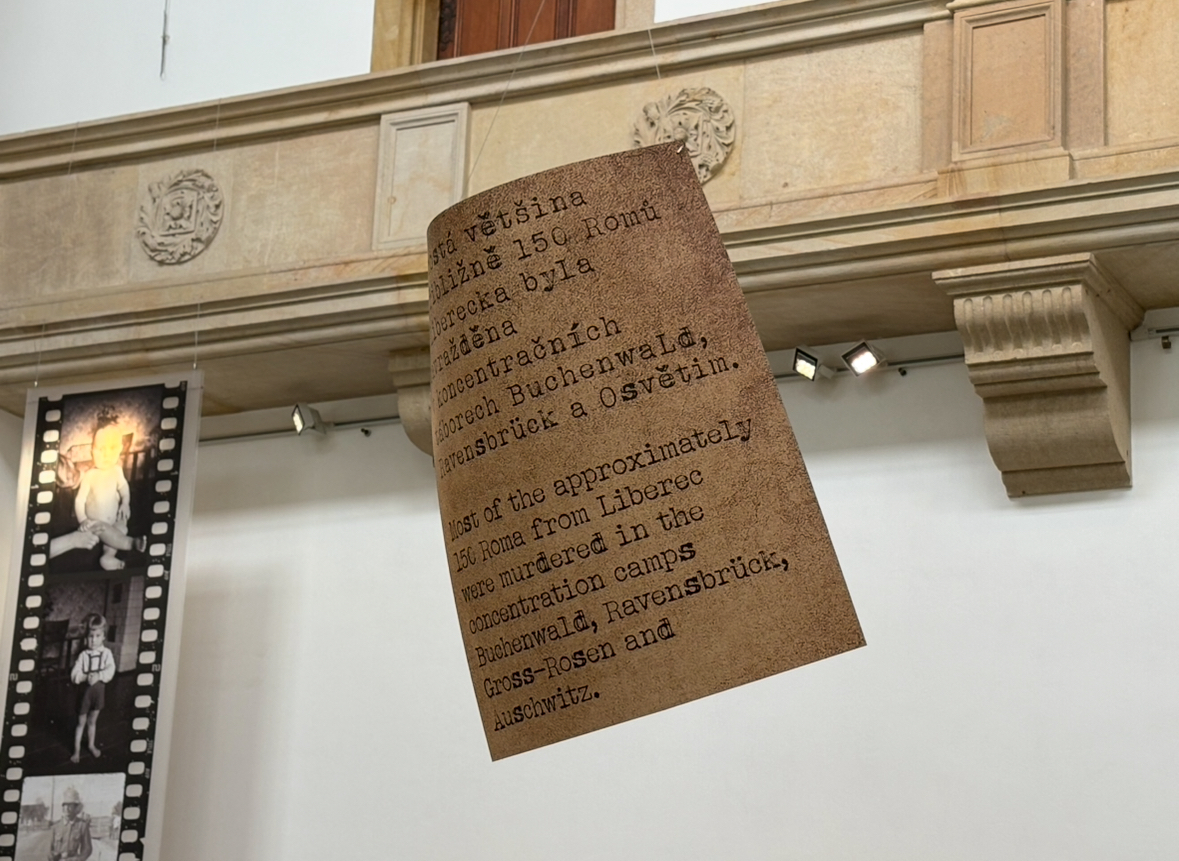 stá většina
bližně 150 Romů
berecka byla
ražděna
koncentračních
áborech Buchenwald,
Ravensbrück a Osvětim.
Most of the approximately
150 Roma from Liberec
were murdered in the
concentration camps
Buchenwald, Ravensbrück,
Gross-Rosen and
Auschwitz.